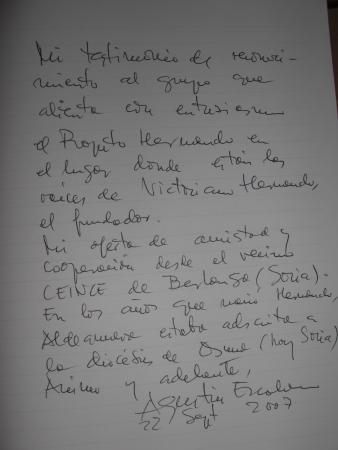 Mi testimonio de reconoci-
miento al grupo que
alienta con entusiasmo
el Proyecto Hernando en
el lugar donde están las
raíces de Victoriano Hernando,
el fundador.
Mi oferta de amistad y
cooperación desde el vecino
CEINCE de Berlanga (Soria).
En los años que nació Hernando,
Aldeanueva estaba adscrita a
la diócesis de Osma (hoy Soria)
Ánimo y adelante,
Agustín Escolano
22 Sept 2007